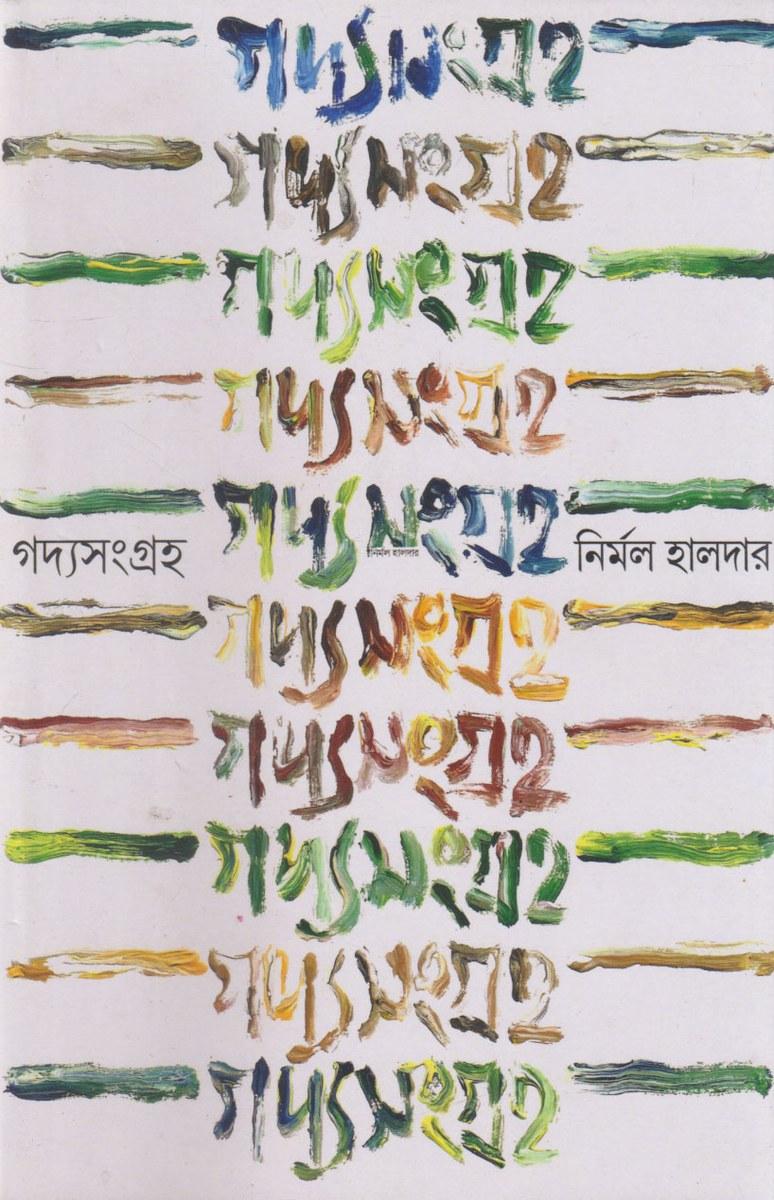 গদ্যসংগ্রহ
গদ্যসংগ্রহ
গদ্যসংগ্রহ
গদ্যসংগ্রহ
গদ্যসংগ্রহ
নির্মল হালদার
গদ্যসংগ্রহ নির্মল হালদার
গদ্যসংগ্রহ
গদ্যসংগ্রহ
গদ্যসংগ্রহ
গদ্যসংগ্রহ
গদ্যসংগ্রহ